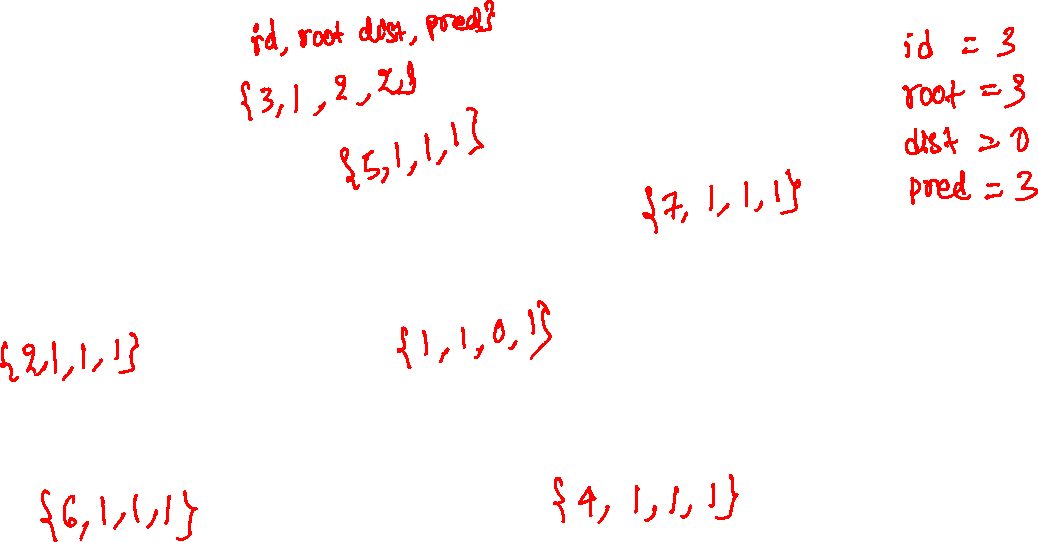 id, root dist, pred}
{3, 1, 2, 2}
{5, 1, 1, 1}
{7, 1, 1, 1}
id = 3
root = 3
dist = 0
pred = 3
{2, 1, 1, 1}
{1, 1, 0, 1}
{6, 1, 1, 1}
{4, 1, 1, 1}